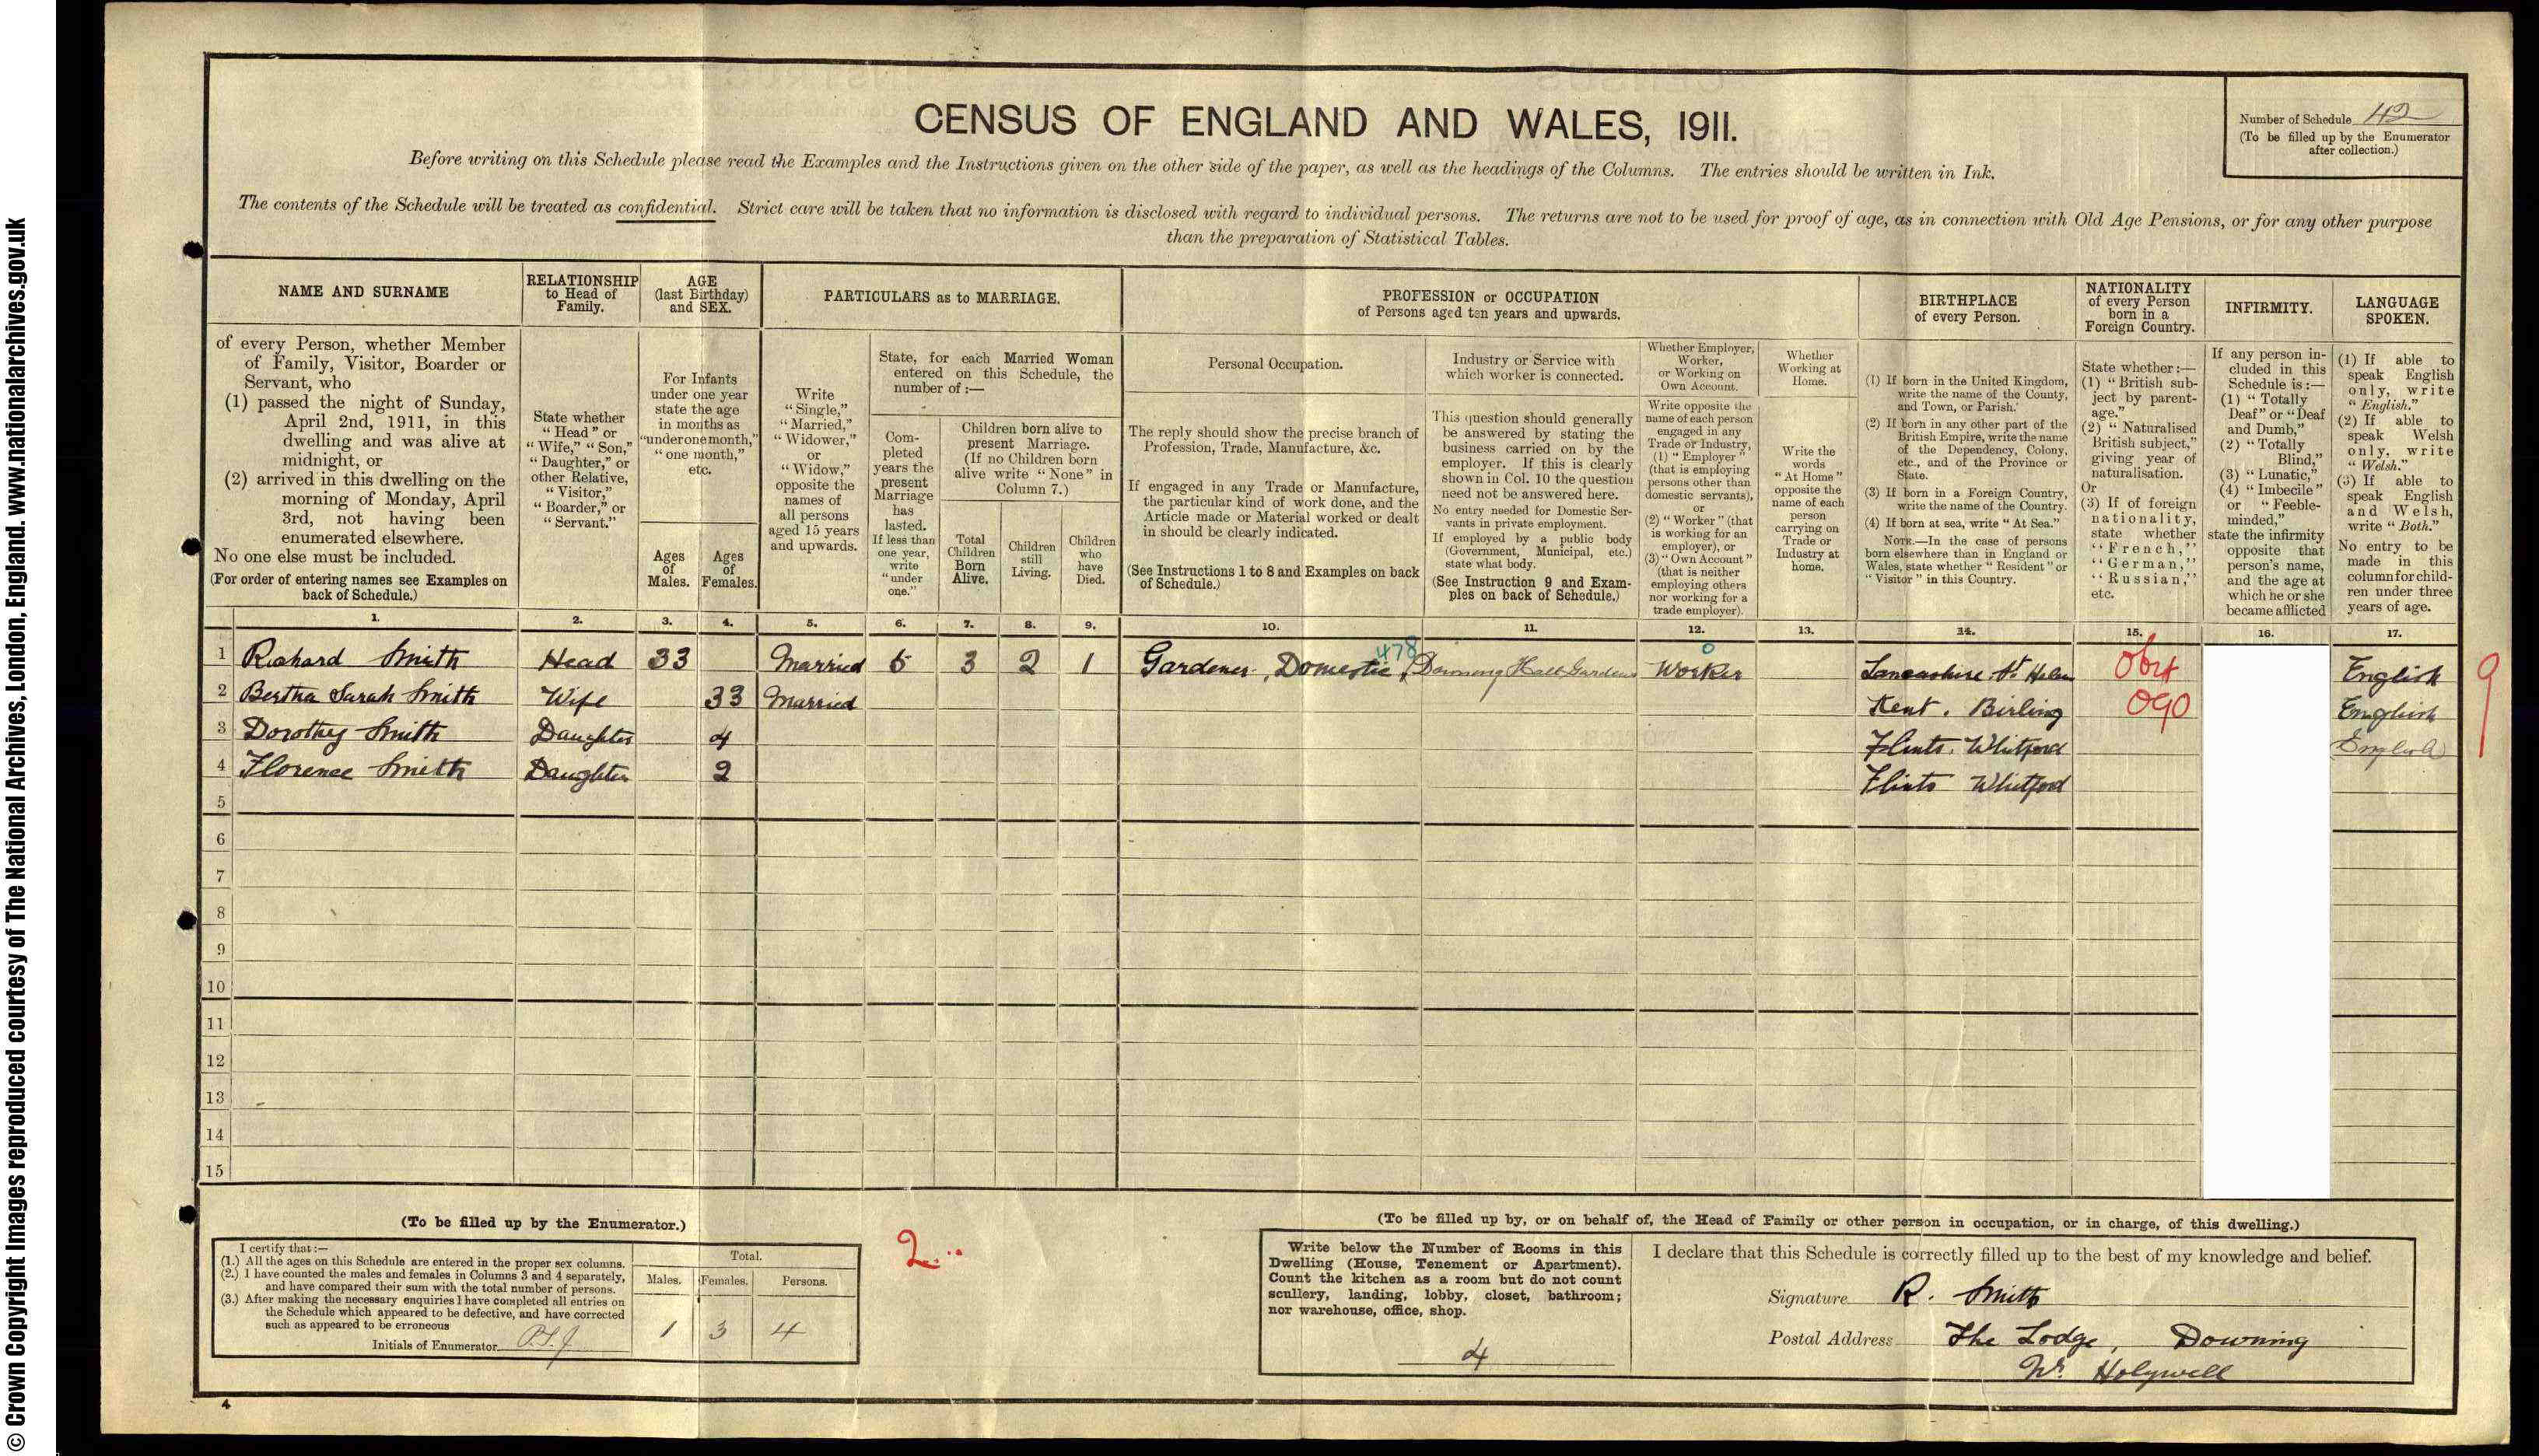 © Crown Copyright Images reproduced courtesy of The National Archives, London, England. www.nationalarchives.gov.uk
CENSUS OF ENGLAND AND WALES, 1911.
Number of Schedule 42
(To be filled up by the Enumerator
after collection.)
Before writing on this Schedule please read the Examples and the Instructions given on the other side of the paper, as well as the headings of the Columns. The entries should be written in Ink.
The contents of the Schedule will be treated as confidential. Strict care will be taken that no information is disclosed with regard to individual persons. The returns are not to be used for proof of age, as in connection with Old Age Pensions, or for any other purpose
than the preparation of Statistical Tables.
NAME AND SURNAME
of every Person, whether Member
of Family, Visitor, Boarder or
Servant, who
(1) passed the night of Sunday,
April 2nd, 1911, in this
dwelling and was alive at
midnight, or
(2) arrived in this dwelling on the
morning of Monday, April
3rd, not having been
enumerated elsewhere.
No one else must be included.
(For order of entering names see Examples on
back of Schedule.)
RELATIONSHIP
to Head of
Family.
State whether
"Head" or
"Wife," "Son,"
"Daughter," or
other Relative,
"Visitor,"
"Boarder," or
"Servant."
AGE
(last Birthday)
and SEX.
For Infants
under one year
state the age
in months as
"under one month,"
"one month,"
etc.
Ages
of
Males.
Ages
of
Females.
PARTICULARS as to MARRIAGE.
Write
"Single,"
"Married,"
"Widower,"
or
"Widow,"
opposite the
names of
all persons
aged 15 years
and upwards.
State, for each Married Woman
entered on this Schedule, the
number of :—
Com-
pleted
years the
present
Marriage
has
lasted.
If less than
one year,
write
"under
one."
Children born alive to
present Marriage.
(If no Children born
alive write "None" in
Column 7.)
Total
Children
Born
Alive.
Children
still
Living.
Children
who
have
Died.
PROFESSION or OCCUPATION
of Persons aged ten years and upwards.
Personal Occupation.
The reply should show the precise branch of
Profession, Trade, Manufacture, &c.
If engaged in any Trade or Manufacture,
the particular kind of work done, and the
Article made or Material worked or dealt
in should be clearly indicated.
(See Instructions 1 to 8 and Examples on back
of Schedule.)
Industry or Service with
which worker is connected.
This question should generally
be answered by stating the
business carried on by the
employer. If this is clearly
shown in Col. 10 the question
need not be answered here.
No entry needed for Domestic Ser-
vants in private employment.
If employed by a public body
(Government, Municipal, etc.)
state what body.
(See Instruction 9 and Exam-
ples on back of Schedule.)
Whether Employer,
Worker,
or Working on
Own Account.
Write opposite the
name of each person
engaged in any
Trade or Industry,
(1) "Employer"
(that is employing
persons other than
domestic servants),
or
(2) "Worker" (that
is working for an
employer), or
(3) "Own Account"
(that is neither
employing others
nor working for a
trade employer).
Whether
Working at
Home.
Write the
words
"At Home"
opposite the
name of each
person
carrying on
Trade or
Industry at
home.
BIRTHPLACE
of every Person.
(1) If born in the United Kingdom,
write the name of the County,
and Town, or Parish.
(2) If born in any other part of the
British Empire, write the name
of the Dependency, Colony,
etc., and of the Province or
State.
(3) If born in a Foreign Country,
write the name of the Country.
(4) If born at sea, write "At Sea."
NOTE.—In the case of persons
born elsewhere than in England or
Wales, state whether "Resident" or
"Visitor" in this Country.
NATIONALITY
of every Person
born in a
Foreign Country.
State whether :—
(1) "British sub-
ject by parent-
age."
(2) "Naturalised
British subject,"
giving year of
naturalisation.
Or
(3) If of foreign
nationality,
state whether
"French,"
"German,"
"Russian,"
etc.
INFIRMITY.
If any person in-
cluded in this
Schedule is :—
(1) "Totally
Deaf" or "Deaf
and Dumb,"
(2) "Totally
Blind,"
(3) "Lunatic,"
(4) "Imbecile"
or "Feeble-
minded,"
state the infirmity
opposite that
person's name,
and the age at
which he or she
became afflicted
LANGUAGE
SPOKEN.
(1) If able to
speak English
only, write
"English."
(2) If able to
speak Welsh
only, write
"Welsh."
(3) If able to
speak English
and Welsh,
write "Both."
No entry to be
made in this
column for child-
ren under three
years of age.
1. 2. 3. 4. 5. 6. 7. 8. 9. 10. 11. 12. 13. 14. 15. 16. 17.
478 0
1 Richard Smith Head 33 Married 5 3 2 1 Gardener, Domestic, Downing Hall Gardens Worker Lancashire St Helens English 9
2 Bertha Sarah Smith Wife 33 Married Kent. Birling 090 English
3 Dorothy Smith Daughter 4 Flints. Whitford English
4 Florence Smith Daughter 2 Flints Whitford
5
6
7
8
9
10
11
12
13
14
15
(To be filled up by the Enumerator.)
I certify that :—
(1.) All the ages on this Schedule are entered in the proper sex columns.
(2.) I have counted the males and females in Columns 3 and 4 separately,
and have compared their sum with the total number of persons.
(3.) After making the necessary enquiries I have completed all entries on
the Schedule which appeared to be defective, and have corrected
such as appeared to be erroneous
Initials of Enumerator
Total.
Males. Females. Persons.
1 3 4
2
(To be filled up by, or on behalf of, the Head of Family or other person in occupation, or in charge, of this dwelling.)
Write below the Number of Rooms in this
Dwelling (House, Tenement or Apartment).
Count the kitchen as a room but do not count
scullery, landing, lobby, closet, bathroom;
nor warehouse, office, shop.
4
I declare that this Schedule is correctly filled up to the best of my knowledge and belief.
Signature R. Smith
Postal Address The Lodge, Downing
Nr Holywell
4